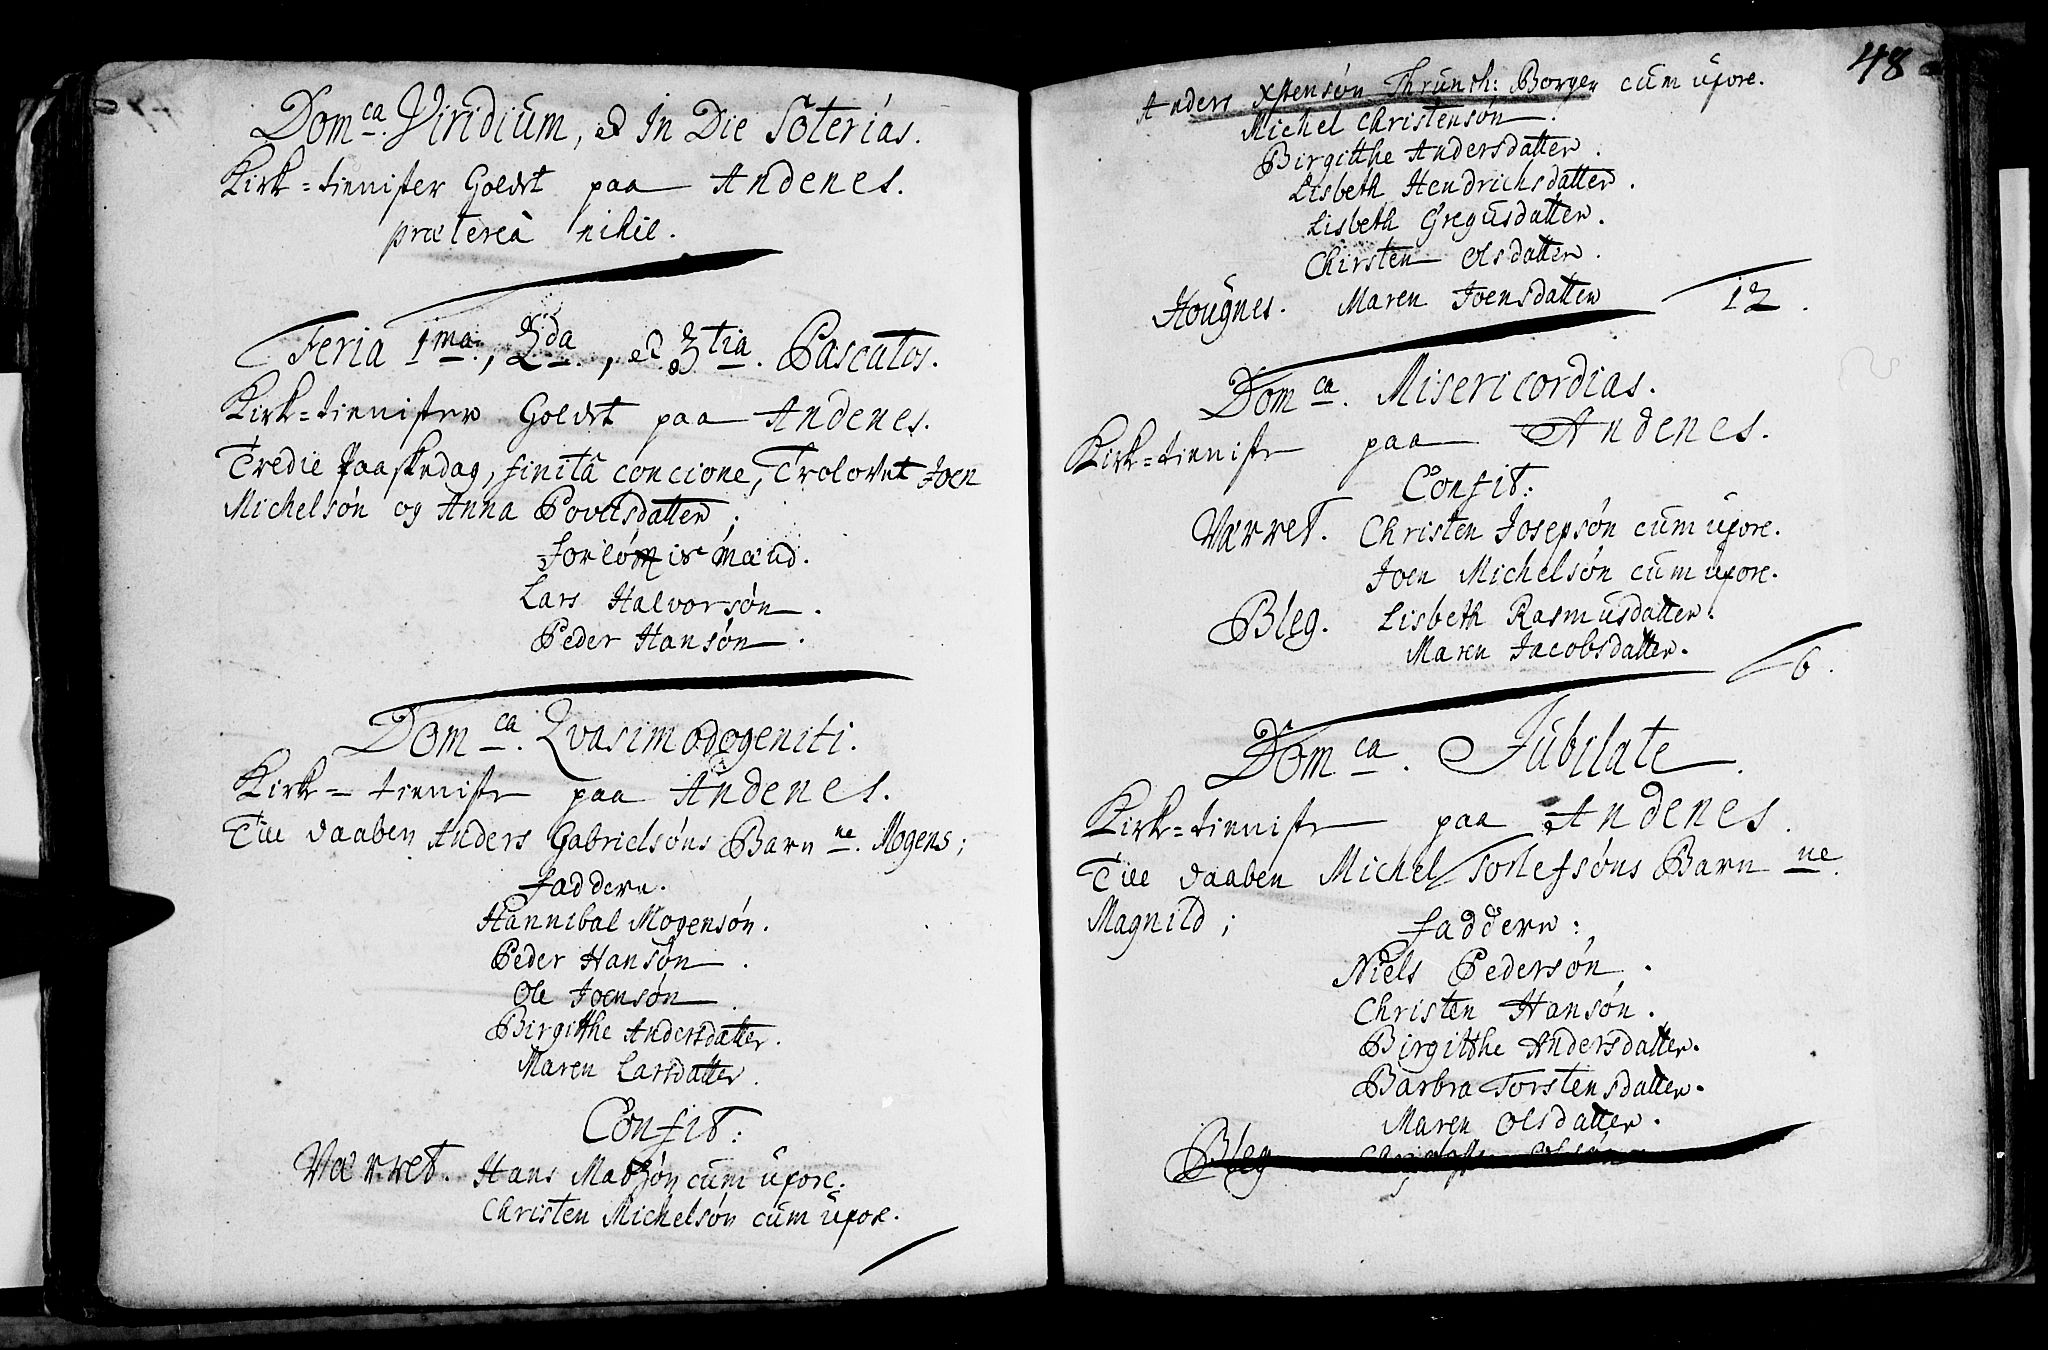 Domca. Viridium, et In Die Soterias.
Kirk=tienister Holdt paa Andenes.
præterea nihil.
Feria 1ma., 2da., et 3tia. Pascatos.
Kirk=tienister Holdt paa Andenes.
Tredie Paaskedag, finitâ concione, Trolovet Joen
Michelsón og Anna Povelsdatter;
Forlóvis mænd.
Lars Halvorsón.
Peder Hansón.
Domca. Qvasimodogeniti.
Kirk=tieniste paa Andenes.
Till daaben Anders Gabrielsóns Barn ne. Mogens;
Faddere.
Hannibal Mogensón.
Peder Hansón.
Ole Joensón.
Birgitthe Andersdatter.
Maren Larsdatter.
Confit:
Værret. Hans Madsón cum uxore.
Christen Michelsón cum uxore.
48
Anders Xstensón Thrunth: Borger cum uxore.
Michel Christensón.
Birgitthe Andersdatter.
Lisbeth Hendrichsdatter.
Lisbeth Gregusdatter.
Chirsten Olsdatter.
Hougnes. Maren Joensdatter 12.
Domca. Misericordias.
Kirk=tieniste paa Andenes.
Confit:
Værret. Christen Josepsón cum uxore.
Joen Michelsón cum uxore.
Bleg. Lisbeth Rasmusdatter.
Maren Jacobsdatter. 6.
Domca. Jubilate.
Kirk=tieniste paa Andenes.
Till daaben Michel Tollefsóns Barn ne.
Magnild; Faddere:
Niels Pedersón.
Christen Hansón.
Birgitthe Andersdatter.
Barbra Torstensdatter.
Maren Olsdatter.
Bleg